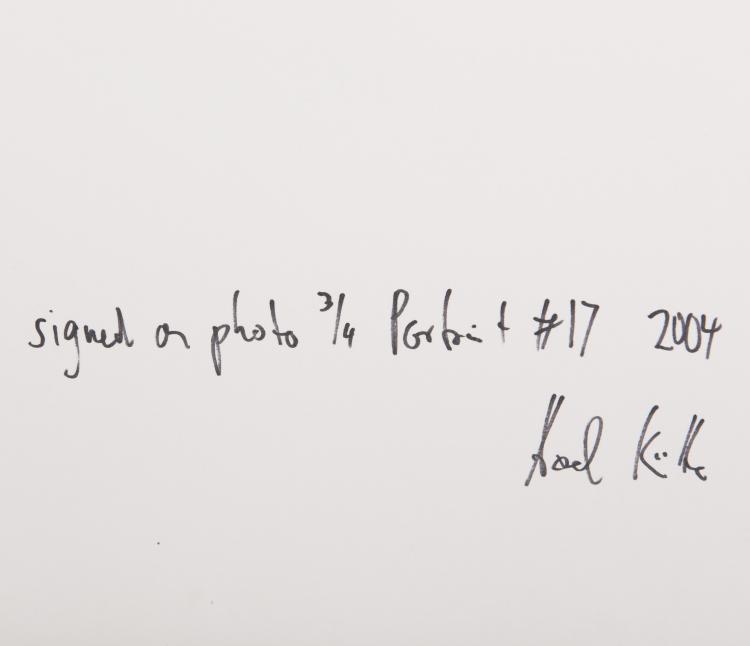 signed on photo 3/4 Portrait #17 2004